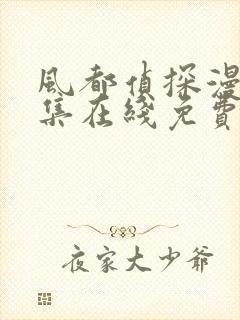 風都偵探漫
集在綫免費
夜家大少爺